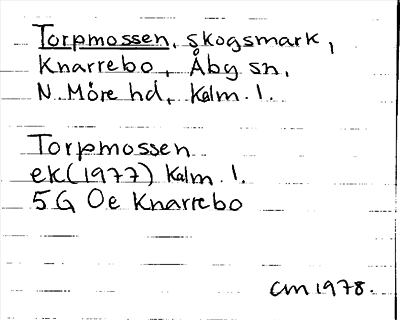 Torpmossen, skogsmark,
Knarrebo, Åby sn,
N. Möre hd, Kalm. l.
Torpmossen
ek (1977) Kalm. l.
5G Oe Knarrebo
CM 1978.